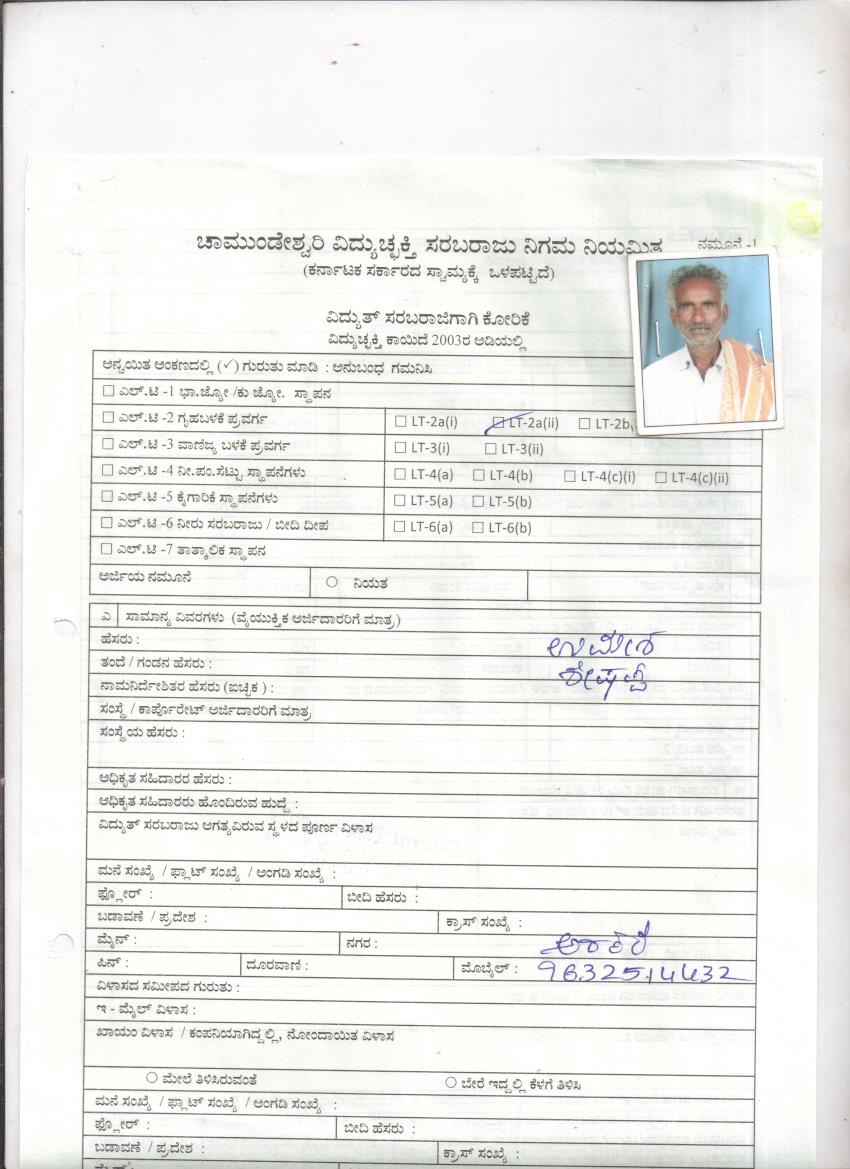 ಚಾಮುಂಡೇಶ್ವರಿ ವಿದ್ಯುಚ್ಛಕ್ತಿ ಸರಬರಾಜು ನಿಗಮ ನಿಯಮಿತ ನಮೂನೆ -1
(ಕರ್ನಾಟಕ ಸರ್ಕಾರದ ಸ್ವಾಮ್ಯಕ್ಕೆ ಒಳಪಟ್ಟಿದೆ)
ವಿದ್ಯುತ್ ಸರಬರಾಜಿಗಾಗಿ ಕೋರಿಕೆ
ವಿದ್ಯುಚ್ಛಕ್ತಿ ಕಾಯಿದೆ 2003ರ ಅಡಿಯಲ್ಲಿ
ಅನ್ವಯಿತ ಅಂಕಣದಲ್ಲಿ (✓) ಗುರುತು ಮಾಡಿ : ಅನುಬಂಧ ಗಮನಿಸಿ
☐ ಎಲ್.ಟಿ -1 ಭಾ.ಜ್ಯೋ /ಕು ಜ್ಯೋ. ಸ್ಥಾಪನ
☐ ಎಲ್.ಟಿ -2 ಗೃಹಬಳಕೆ ಪ್ರವರ್ಗ ☐ LT-2a(i) ☐ LT-2a(ii) ☐ LT-2b,
☐ ಎಲ್.ಟಿ -3 ವಾಣಿಜ್ಯ ಬಳಕೆ ಪ್ರವರ್ಗ ☐ LT-3(i) ☐ LT-3(ii)
☐ ಎಲ್.ಟಿ -4 ನೀ.ಪಂ.ಸೆಟ್ಟು ಸ್ಥಾಪನೆಗಳು ☐ LT-4(a) ☐ LT-4(b) ☐ LT-4(c)(i) ☐ LT-4(c)(ii)
☐ ಎಲ್.ಟಿ -5 ಕೈಗಾರಿಕೆ ಸ್ಥಾಪನೆಗಳು ☐ LT-5(a) ☐ LT-5(b)
☐ ಎಲ್.ಟಿ -6 ನೀರು ಸರಬರಾಜು / ಬೀದಿ ದೀಪ ☐ LT-6(a) ☐ LT-6(b)
☐ ಎಲ್.ಟಿ -7 ತಾತ್ಕಾಲಿಕ ಸ್ಥಾಪನ
ಅರ್ಜಿಯ ನಮೂನೆ ○ ನಿಯತ
ಎ ಸಾಮಾನ್ಯ ವಿವರಗಳು (ವೈಯುಕ್ತಿಕ ಅರ್ಜಿದಾರರಿಗೆ ಮಾತ್ರ)
ಹೆಸರು : ಉಮೇಶ
ತಂದೆ / ಗಂಡನ ಹೆಸರು :
ನಾಮನಿರ್ದೇಶಿತರ ಹೆಸರು (ಐಚ್ಛಿಕ ) :
ಸಂಸ್ಥೆ / ಕಾರ್ಪೊರೇಟ್ ಅರ್ಜಿದಾರರಿಗೆ ಮಾತ್ರ
ಸಂಸ್ಥೆಯ ಹೆಸರು :
ಅಧಿಕೃತ ಸಹಿದಾರರ ಹೆಸರು :
ಅಧಿಕೃತ ಸಹಿದಾರರು ಹೊಂದಿರುವ ಹುದ್ದೆ :
ವಿದ್ಯುತ್ ಸರಬರಾಜು ಅಗತ್ಯವಿರುವ ಸ್ಥಳದ ಪೂರ್ಣ ವಿಳಾಸ
ಮನೆ ಸಂಖ್ಯೆ / ಫ್ಲಾಟ್ ಸಂಖ್ಯೆ / ಅಂಗಡಿ ಸಂಖ್ಯೆ :
ಫ್ಲೋರ್ : ಬೀದಿ ಹೆಸರು :
ಬಡಾವಣೆ / ಪ್ರದೇಶ : ಕ್ರಾಸ್ ಸಂಖ್ಯೆ :
ಮೈನ್ : ನಗರ :
ಪಿನ್ : ದೂರವಾಣಿ : ಮೊಬೈಲ್ : 9632514432
ವಿಳಾಸದ ಸಮೀಪದ ಗುರುತು :
ಇ - ಮೈಲ್ ವಿಳಾಸ :
ಖಾಯಂ ವಿಳಾಸ / ಕಂಪನಿಯಾಗಿದ್ದಲ್ಲಿ, ನೋಂದಾಯಿತ ವಿಳಾಸ
○ ಮೇಲೆ ತಿಳಿಸಿರುವಂತೆ ○ ಬೇರೆ ಇದ್ದಲ್ಲಿ ಕೆಳಗೆ ತಿಳಿಸಿ
ಮನೆ ಸಂಖ್ಯೆ / ಫ್ಲಾಟ್ ಸಂಖ್ಯೆ / ಅಂಗಡಿ ಸಂಖ್ಯೆ :
ಫ್ಲೋರ್ : ಬೀದಿ ಹೆಸರು :
ಬಡಾವಣೆ / ಪ್ರದೇಶ : ಕ್ರಾಸ್ ಸಂಖ್ಯೆ :